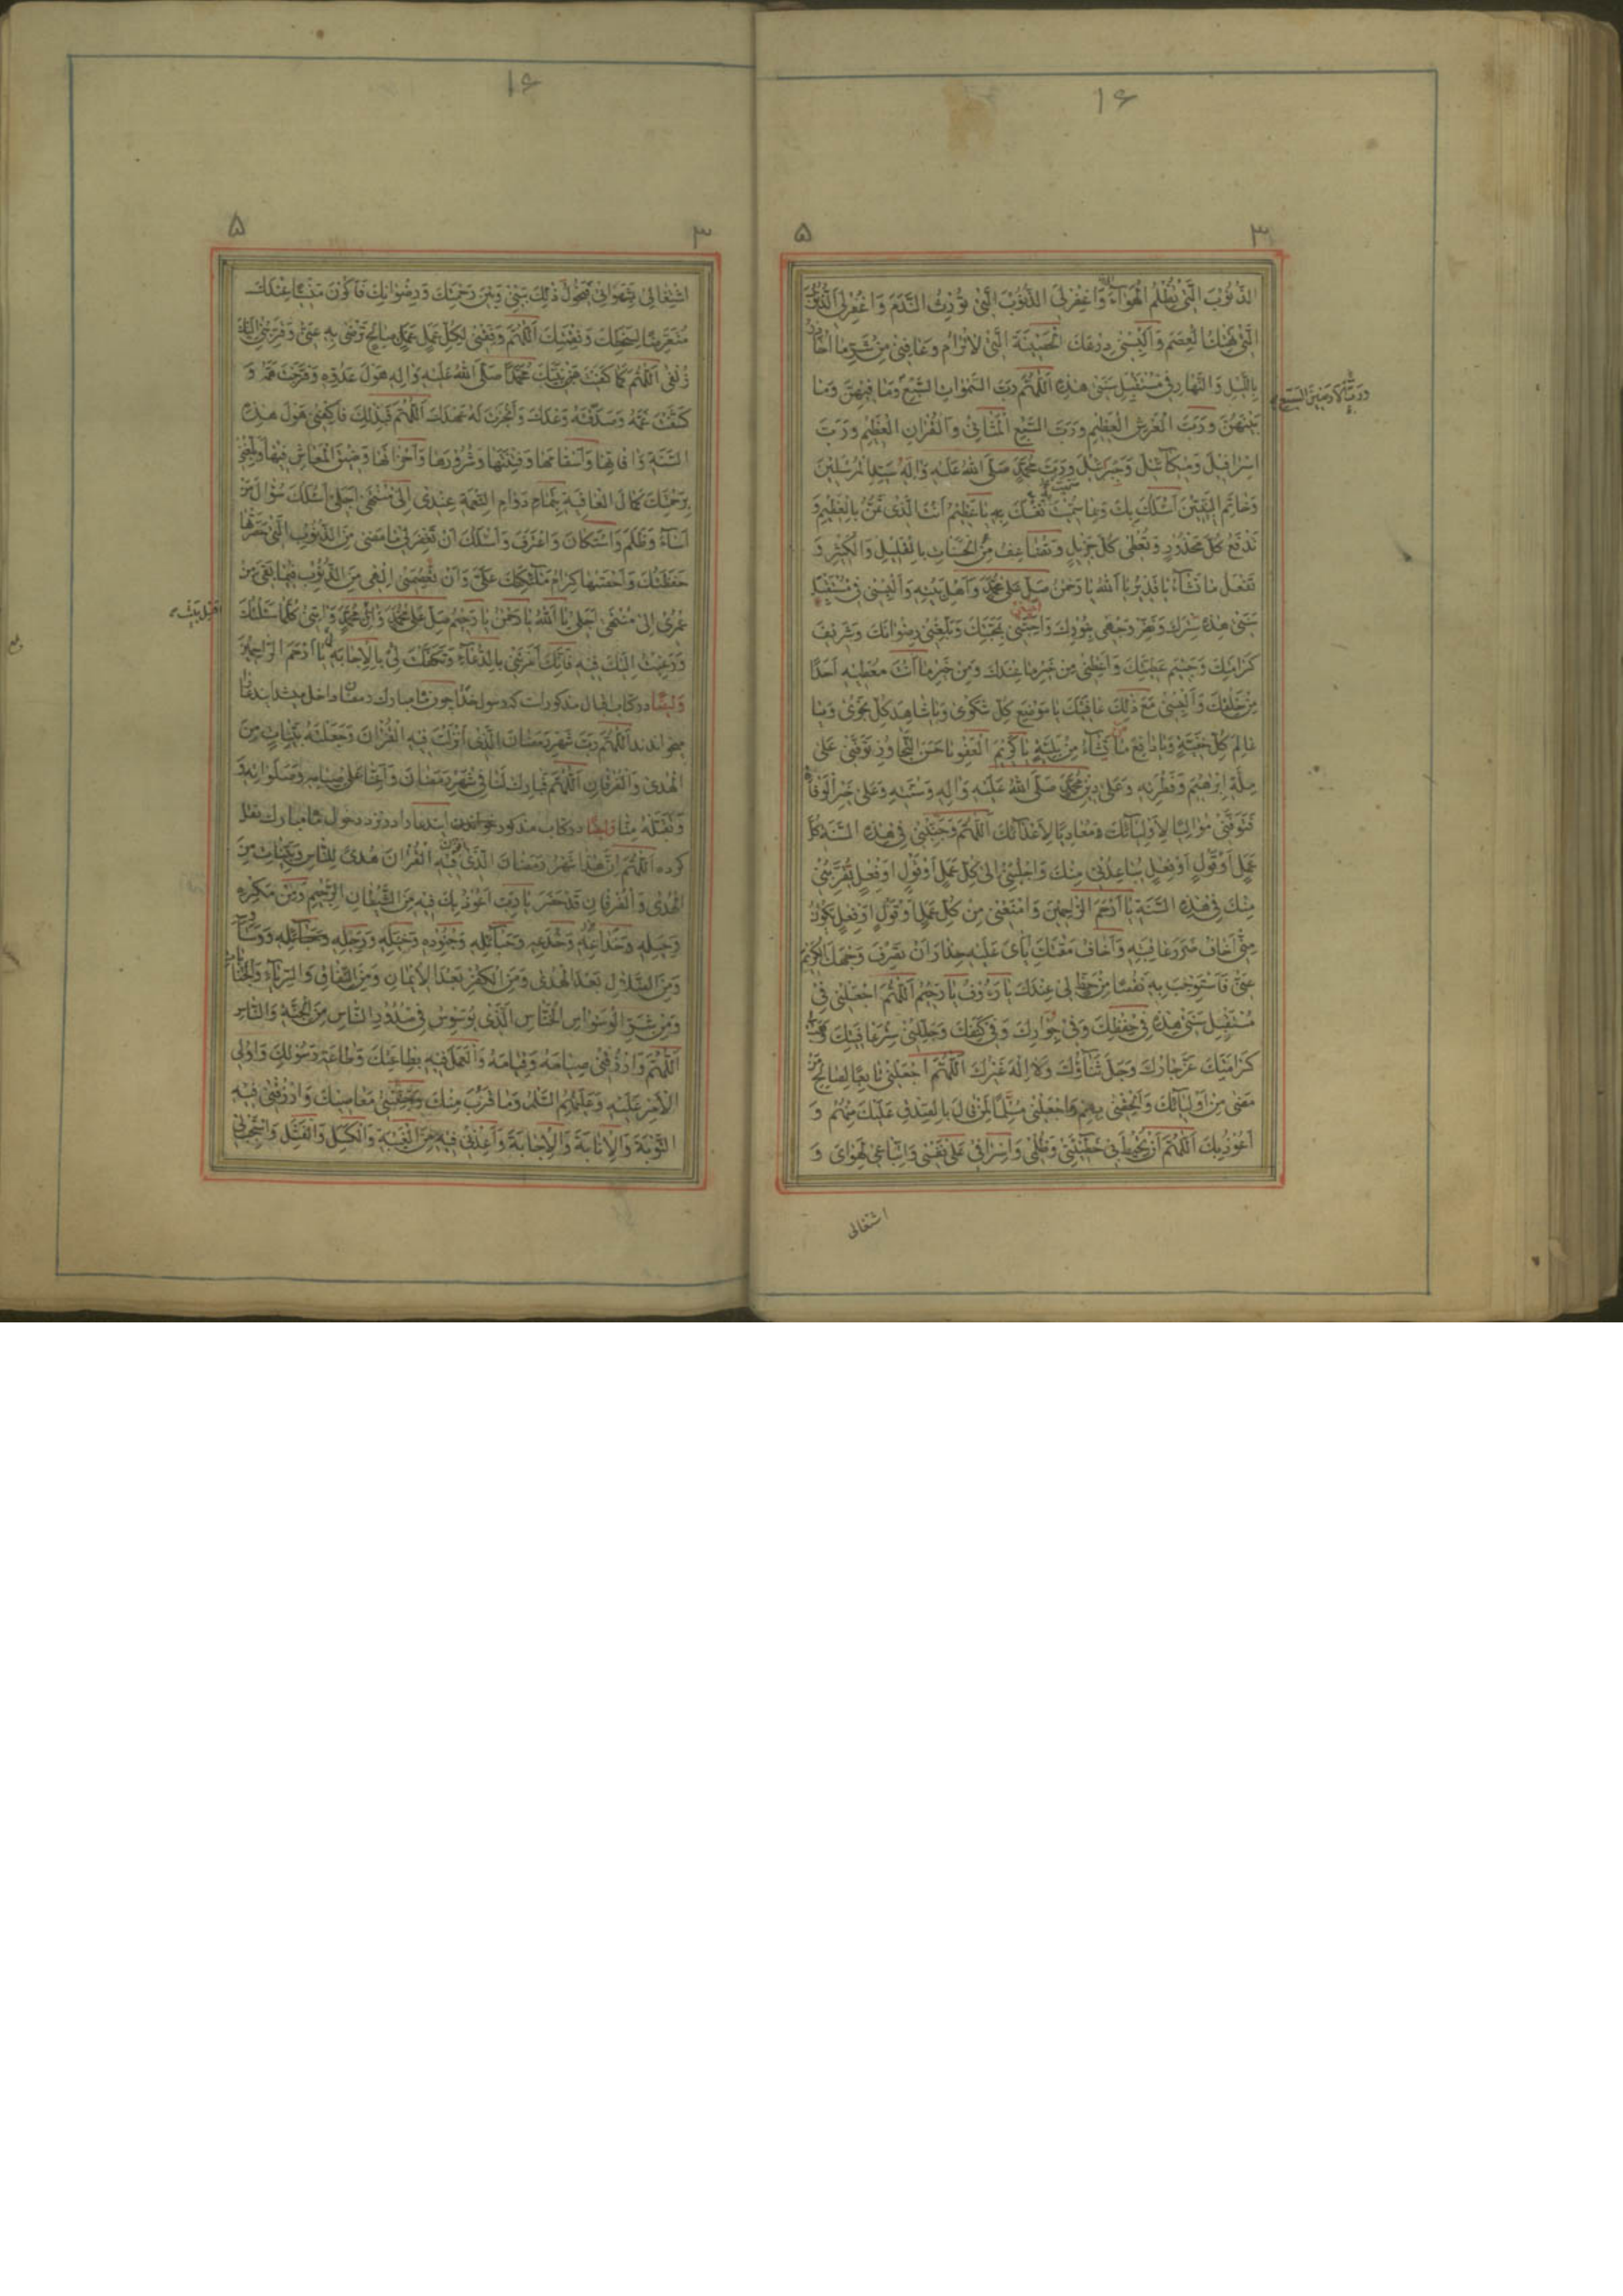 ۱۶
۳
۵
الذُّنُوبَ الَّتِي تُظْلِمُ الْهَوَآءَ وَاغْفِرْ لِيَ الذُّنُوبَ الَّتِي تُورِثُ النَّدَمَ وَاغْفِرْ لِيَ الذُّنُوبَ
الَّتِي تَهْتِكُ الْعِصَمَ وَأَلْبِسْنِي دِرْعَكَ الْحَصِينَةَ الَّتِي لَا تُرَامُ وَعَافِنِي مِنْ شَرِّ مَا أُحَاذِرُ
بِاللَّيْلِ وَالنَّهَارِ فِي مُسْتَقْبِلِ سَنَتِي هٰذِهِ اَللّٰهُمَّ رَبَّ السَّمٰوَاتِ السَّبْعِ وَمَا فِيهِنَّ وَمَا
وَرَبَّ الْأَرَضِينَ السَّبْعِ
بَيْنَهُنَّ وَرَبَّ الْعَرْشِ الْعَظِيمِ وَرَبَّ السَّبْعِ الْمَثَانِي وَالْقُرْآنِ الْعَظِيمِ وَرَبَّ
اِسْرَافِيلَ وَمِيكَآئِيلَ وَجَبْرَئِيلَ وَرَبَّ مُحَمَّدٍ صَلَّى اللهُ عَلَيْهِ وَآلِهِ سَيِّدِ الْمُرْسَلِينَ
وَخَاتَمِ النَّبِيِّينَ أَسْئَلُكَ بِكَ وَبِمَا سَمَّيْتَ نَفْسَكَ بِهِ يَا عَظِيمُ أَنْتَ الَّذِي تَمُنُّ بِالْعَظِيمِ وَ
تَدْفَعُ كُلَّ مَحْذُورٍ وَتُعْطِي كُلَّ جَزِيلٍ وَتُضَاعِفُ مِنَ الْحَسَنَاتِ بِالْقَلِيلِ وَالْكَثِيرِ وَ
تَفْعَلُ مَا تَشَآءُ يَا قَدِيرُ يَا اَللهُ يَا رَحْمٰنُ صَلِّ عَلَى مُحَمَّدٍ وَأَهْلِ بَيْتِهِ وَأَلْبِسْنِي فِي مُسْتَقْبَلِ
سَنَتِي هٰذِهِ سِتْرَكَ وَنَضِّرْ وَجْهِي بِنُورِكَ وَأَحِبَّنِي بِمَحَبَّتِكَ وَبَلِّغْنِي رِضْوَانَكَ وَشَرِيفَ
كَرَامَتِكَ وَجَسِيمَ عَطِيَّتِكَ وَأَعْطِنِي مِنْ خَيْرِ مَا عِنْدَكَ وَمِنْ خَيْرِ مَا أَنْتَ مُعْطِيهِ أَحَدًا
مِنْ خَلْقِكَ وَأَلْبِسْنِي مَعَ ذٰلِكَ عَافِيَتَكَ يَا مَوْضِعَ كُلِّ شَكْوَى وَيَا شَاهِدَ كُلِّ نَجْوَى وَيَا
عَالِمَ كُلِّ خَفِيَّةٍ وَيَا دَافِعَ مَا تَشَآءُ مِنْ بَلِيَّةٍ يَا كَرِيمَ الْعَفْوِ يَا حَسَنَ التَّجَاوُزِ تَوَفَّنِي عَلَى
مِلَّةِ اِبْرٰهِيمَ وَفِطْرَتِهِ وَعَلَى دِينِ مُحَمَّدٍ صَلَّى اللهُ عَلَيْهِ وَآلِهِ وَسُنَّتِهِ وَعَلَى خَيْرِ الْوَفَاةِ
فَتَوَفَّنِي مُوَالِيًا لِأَوْلِيَآئِكَ وَمُعَادِيًا لِأَعْدَآئِكَ اَللّٰهُمَّ وَجَنِّبْنِي فِي هٰذِهِ السَّنَةِ كُلَّ
عَمَلٍ أَوْ قَوْلٍ أَوْ فِعْلٍ يُبَاعِدُنِي مِنْكَ وَاجْلِبْنِي إِلَى كُلِّ عَمَلٍ أَوْ قَوْلٍ أَوْ فِعْلٍ يُقَرِّبُنِي
مِنْكَ فِي هٰذِهِ السَّنَةِ يَا أَرْحَمَ الرَّاحِمِينَ وَامْنَعْنِي مِنْ كُلِّ عَمَلٍ أَوْ قَوْلٍ أَوْ فِعْلٍ يَكُونُ
مِنِّي أَخَافُ ضَرَرَ عَاقِبَتِهِ وَأَخَافُ مَقْتَكَ إِيَّايَ عَلَيْهِ حِذَارَ أَنْ تَصْرِفَ وَجْهَكَ الْكَرِيمَ
عَنِّي فَأَسْتَوْجِبَ بِهِ نَقْصًا مِنْ حَظٍّ لِي عِنْدَكَ يَا رَءُوفُ يَا رَحِيمُ اَللّٰهُمَّ اجْعَلْنِي فِي
مُسْتَقْبِلِ سَنَتِي هٰذِهِ فِي حِفْظِكَ وَفِي جِوَارِكَ وَفِي كَنَفِكَ وَجَلِّلْنِي سِتْرَ عَافِيَتِكَ وَهَبْ لِي
كَرَامَتَكَ عَزَّ جَارُكَ وَجَلَّ ثَنَآؤُكَ وَلَا اِلٰهَ غَيْرُكَ اَللّٰهُمَّ اجْعَلْنِي تَابِعًا لِصَالِحِ مَنْ
مَضَى مِنْ أَوْلِيَآئِكَ وَأَلْحِقْنِي بِهِمْ وَاجْعَلْنِي مُسَلِّمًا لِمَنْ قَالَ بِالصِّدْقِ عَلَيْكَ مِنْهُمْ وَ
أَعُوذُ بِكَ اَللّٰهُمَّ أَنْ تُحِيطَ بِي خَطِيئَتِي وَظُلْمِي وَإِسْرَافِي عَلَى نَفْسِي وَاتِّبَاعِي لِهَوَايَ وَ
اشتغالی
۱۶
۳
۵
اشْتِغَالِي بِشَهَوَاتِي فَيَحُولَ ذٰلِكَ بَيْنِي وَبَيْنَ رَحْمَتِكَ وَرِضْوَانِكَ فَأَكُونَ مَنْسِيًّا عِنْدَكَ
مُتَعَرِّضًا لِسَخَطِكَ وَنِقْمَتِكَ اَللّٰهُمَّ وَفِّقْنِي لِكُلِّ عَمَلٍ صَالِحٍ تَرْضَى بِهِ عَنِّي وَقَرِّبْنِي إِلَيْكَ
زُلْفَى اَللّٰهُمَّ كَمَا كَفَيْتَ نَبِيَّكَ مُحَمَّدًا صَلَّى اللهُ عَلَيْهِ وَآلِهِ هَوْلَ عَدُوِّهِ وَفَرَّجْتَ هَمَّهُ وَ
كَشَفْتَ غَمَّهُ وَصَدَقْتَهُ وَعْدَكَ وَأَنْجَزْتَ لَهُ عَهْدَكَ اَللّٰهُمَّ فَبِذٰلِكَ فَاكْفِنِي هَوْلَ هٰذِهِ
السَّنَةِ وَآفَاتِهَا وَأَسْقَامَهَا وَفِتْنَتَهَا وَشُرُورَهَا وَأَحْزَانَهَا وَضِيقَ الْمَعَاشِ فِيهَا وَبَلِّغْنِي
بِرَحْمَتِكَ كَمَالَ الْعَافِيَةِ بِتَمَامِ دَوَامِ النِّعْمَةِ عِنْدِي إِلَى مُنْتَهَى أَجَلِي أَسْئَلُكَ سُؤَالَ مَنْ
أَسَآءَ وَظَلَمَ وَاسْتَكَانَ وَاعْتَرَفَ وَأَسْئَلُكَ أَنْ تَغْفِرَ لِي مَا مَضَى مِنَ الذُّنُوبِ الَّتِي حَصَرَتْهَا
حَفَظَتُكَ وَأَحْصَتْهَا كِرَامُ مَلَآئِكَتِكَ عَلَيَّ وَأَنْ تَعْصِمَنِي إِلٰهِي مِنَ الذُّنُوبِ فِيمَا بَقِيَ مِنْ
عُمْرِي إِلَى مُنْتَهَى أَجَلِي يَا اَللهُ يَا رَحْمٰنُ يَا رَحِيمُ صَلِّ عَلَى مُحَمَّدٍ وَآلِ مُحَمَّدٍ وَآتِنِي كُلَّمَا سَئَلْتُكَ
وَرَغِبْتُ إِلَيْكَ فِيهِ فَإِنَّكَ أَمَرْتَنِي بِالدُّعَآءِ وَتَكَفَّلْتَ لِي بِالْإِجَابَةِ يَا أَرْحَمَ الرَّاحِمِينَ
وَایضًا در کتاب اقبال مذکور است که رسول خدا چون ماه مبارک رمضان داخل میشد این دعا
میخواندند اَللّٰهُمَّ رَبَّ شَهْرِ رَمَضَانَ الَّذِي أَنْزَلْتَ فِيهِ الْقُرْآنَ وَجَعَلْتَهُ بَيِّنَاتٍ مِنَ
الْهُدَى وَالْفُرْقَانِ اَللّٰهُمَّ فَبَارِكْ لَنَا فِي شَهْرِ رَمَضَانَ وَأَعِنَّا عَلَى صِيَامِهِ وَصَلَوَاتِهِ وَ
تَقَبَّلْهُ مِنَّا وایضًا در کتاب مذکور خواندن ایندعا را در روز دخول ماه مبارک نقل
کرده اَللّٰهُمَّ إِنَّ هٰذَا شَهْرُ رَمَضَانَ الَّذِي أَنْزَلْتَ فِيهِ الْقُرْآنَ هُدًى لِلنَّاسِ وَبَيِّنَاتٍ مِنَ
الْهُدَى وَالْفُرْقَانِ قَدْ حَضَرَ يَا رَبِّ أَعُوذُ بِكَ فِيهِ مِنَ الشَّيْطَانِ الرَّجِيمِ وَمِنْ مَكْرِهِ
وَحِيَلِهِ وَخِدَاعِهِ وَحَبَآئِلِهِ وَجُنُودِهِ وَخَيْلِهِ وَرَجِلِهِ
وَمِنَ الضَّلَالِ بَعْدَ الْهُدَى وَمِنَ الْكُفْرِ بَعْدَ الْإِيمَانِ وَمِنَ النِّفَاقِ وَالرِّيَآءِ
وَمِنْ شَرِّ الْوَسْوَاسِ الْخَنَّاسِ الَّذِي يُوَسْوِسُ فِي صُدُورِ النَّاسِ مِنَ الْجِنَّةِ وَالنَّاسِ
اَللّٰهُمَّ وَارْزُقْنِي صِيَامَهُ وَقِيَامَهُ وَالْعَمَلَ فِيهِ بِطَاعَتِكَ وَطَاعَةِ رَسُولِكَ وَأُولِي
الْأَمْرِ عَلَيْهِ وَعَلَيْهِمُ السَّلَامُ وَمَا قَرُبَ مِنْكَ وَجَنِّبْنِي مَعَاصِيَكَ وَارْزُقْنِي فِيهِ
التَّوْبَةَ وَالْإِنَابَةَ وَالْإِجَابَةَ وَأَعِذْنِي فِيهِ مِنَ الْغِيبَةِ وَالْكَسَلِ وَالْفَشَلِ وَاسْتَجِبْ لِي